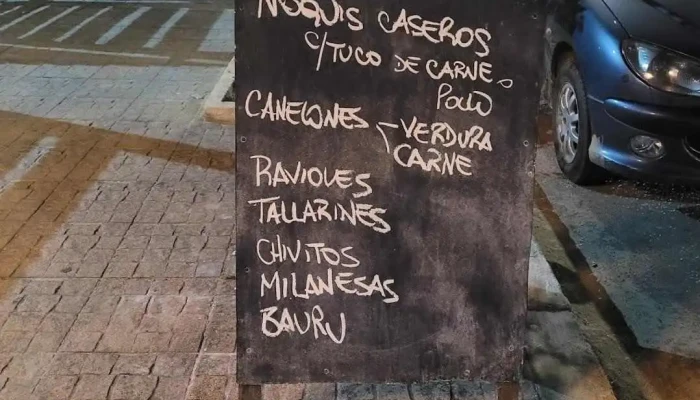 ÑOQUIS CASEROS
C/TUCO DE CARNE o
POLLO
CANELONES VERDURA
CARNE
RAVIOLES
TALLARINES
CHIVITOS
MILANESAS
BAURU